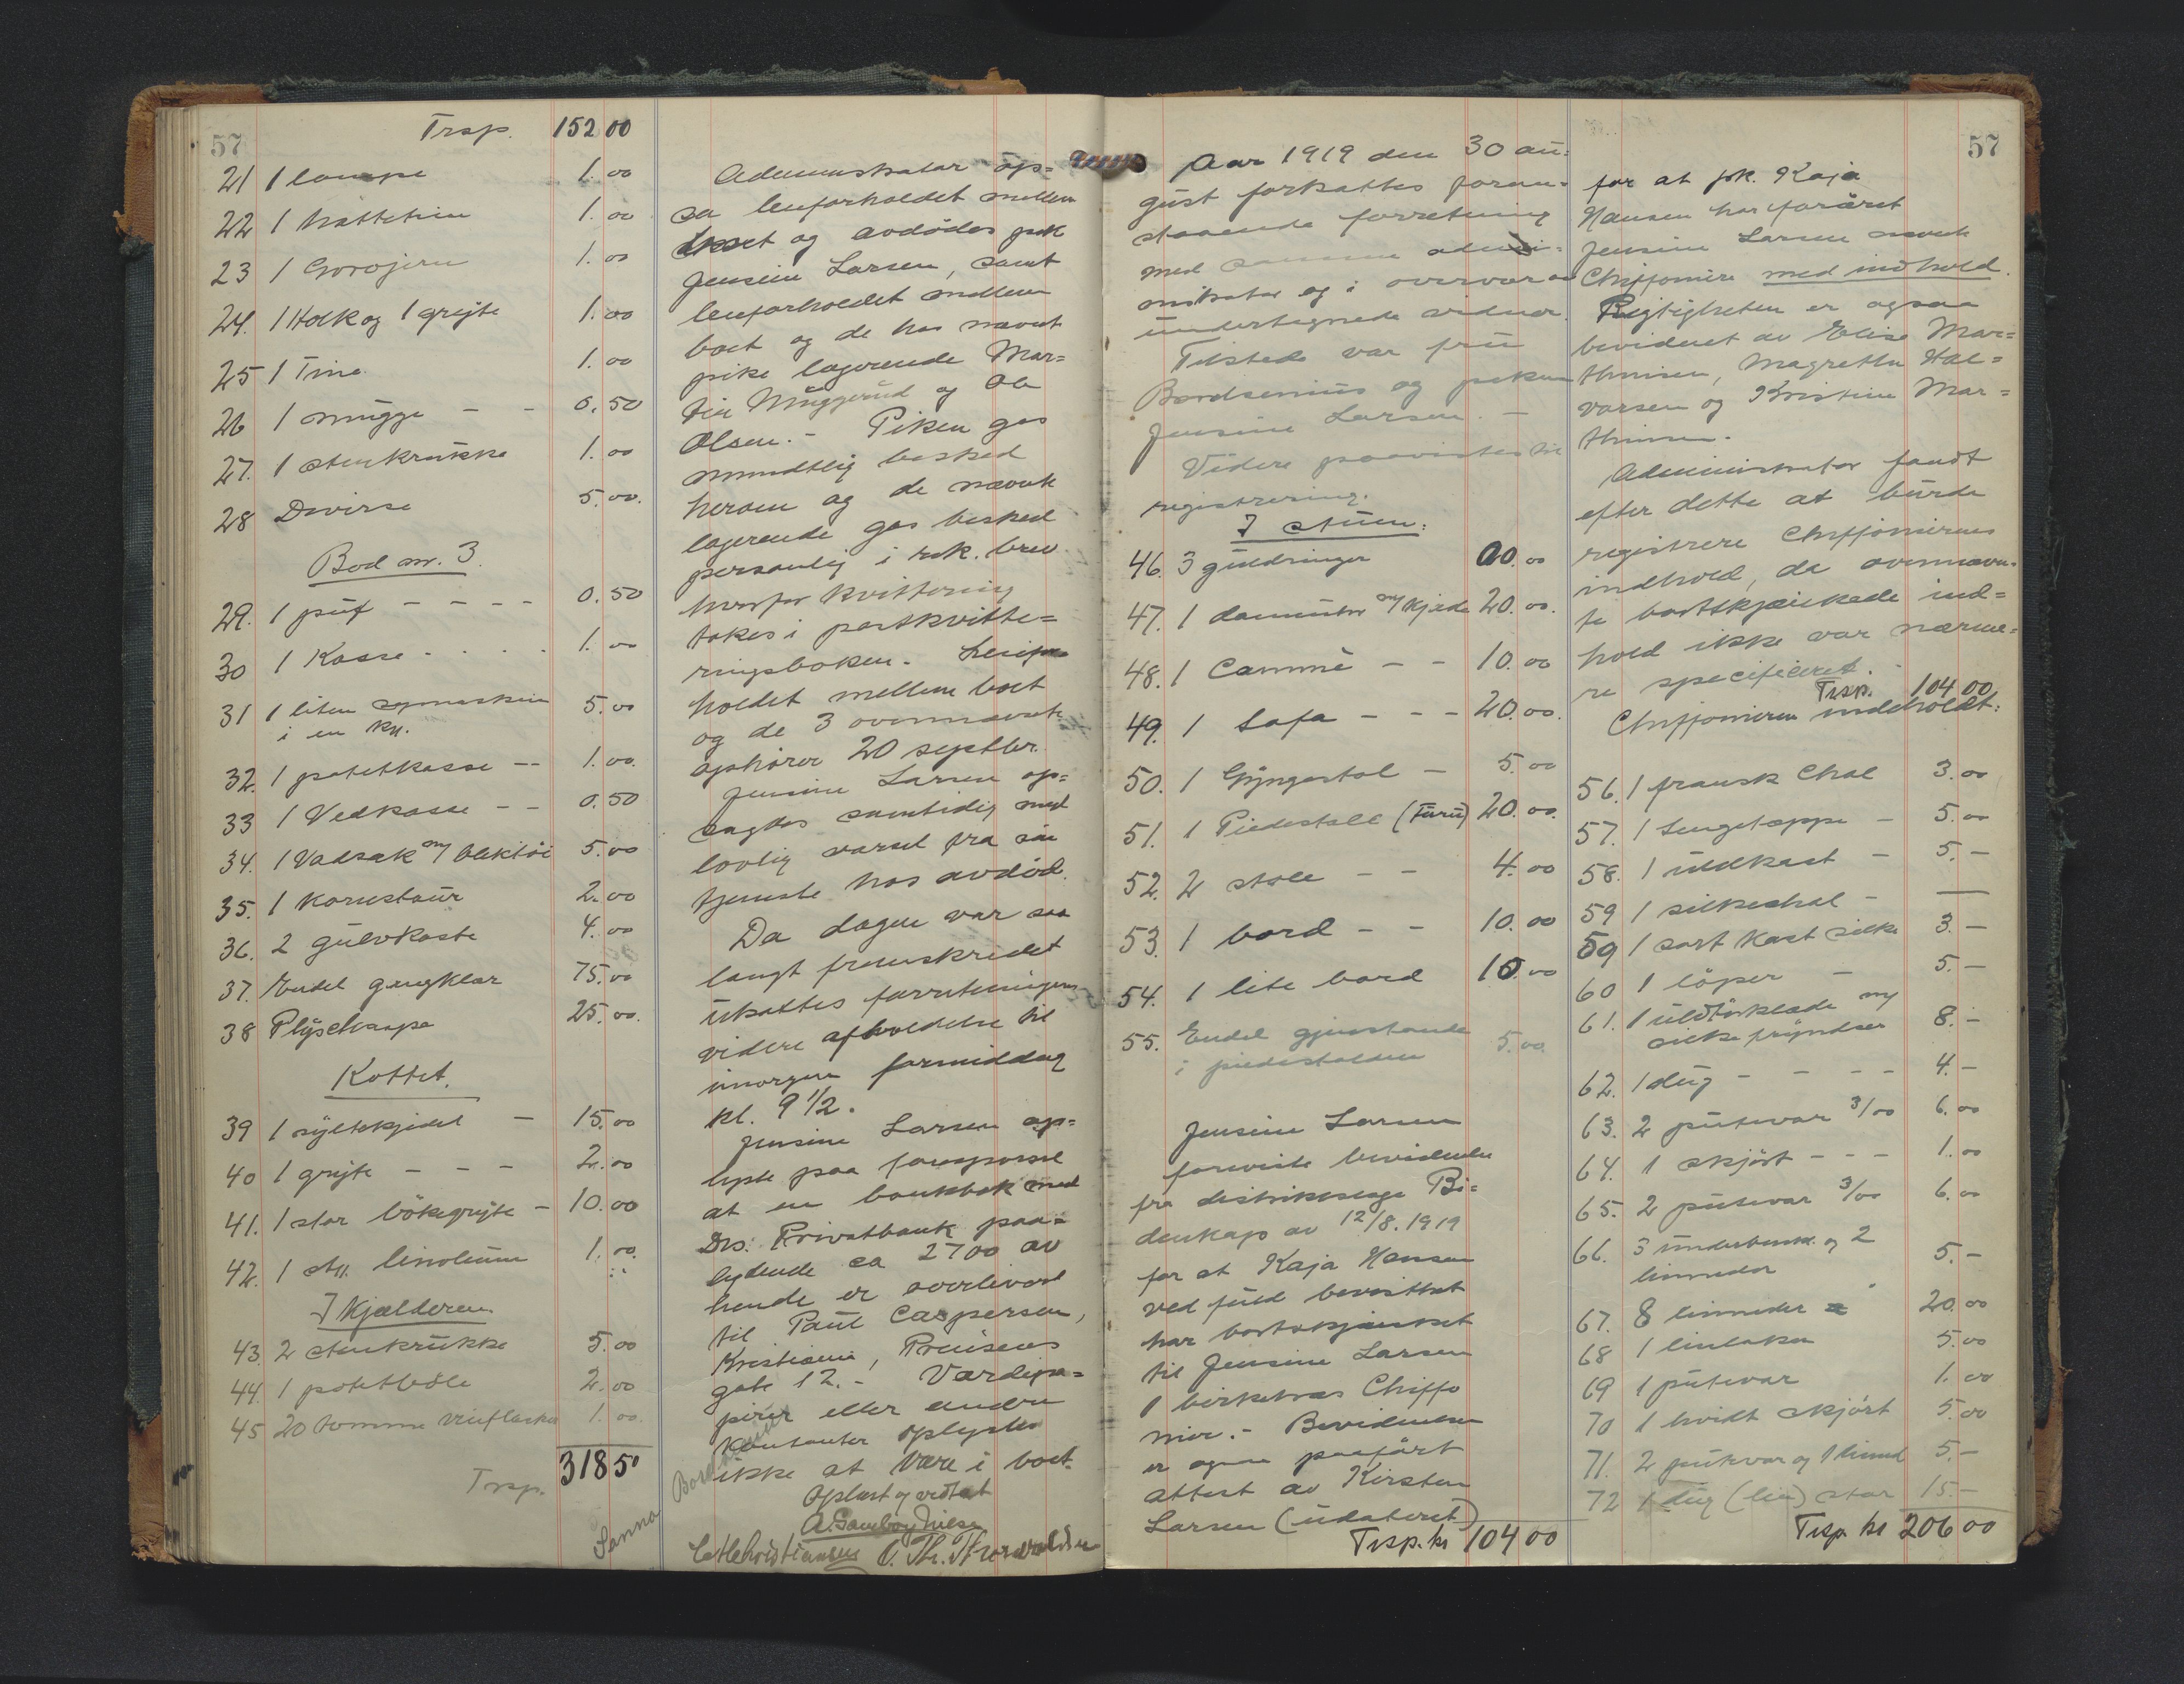 57
Trsp. 152 00
21 1 lampe 1.00
22 1 hattetine 1.00
23 1 Gorojern 1.00
24. 1 Holk og 1 gryte 1.00
25 1 Tine 1.00
26 1 mugge - - 0.50
27. 1 stenkrukke 1.00
28 Diverse 5.00.
Bod nr. 3.
29. 1 puf - - - - 0.50
30 1 Kasse . . . . 1.00
31 1 liten symaskin 5.00
i en ku.
32. 1 potetkasse - - 1.00.
33 1 Vedkasse - - 0.50
34. 1 Vadsæk m/ 5.00
35. 1 kornstaur 2.00
36. 2 gulvkoste 4.00
37. Endel gangklær 75.00
38 Plyschkape 25.00.
Kottet.
39 1 syltekjedel - 15.00
40 1 gryte - - - 2.00
41. 1 stor bökegryte - 10.00
42. 1 st. linoleum 1.00.
I Kjælderen
43. 2 stenkrukke 5.00
44. 1 potetbøle 2.00
45 20 tomme vinflasker 1.00.
Trsp. 318 50
Administrator op=
sa leieforholdet mellem
boet og avdødes pike
Jensine Larsen, samt
leieforholdet mellem
boet og de hos nævnte
pike logerende Mar=
tin Muggerud og Ole
Olsen. - Piken gas
mundtlig besked
herom og de nævnte
logerende gas besked
personlig i rek. brev
hvorfor kvittering
tokes i postkvitte=
ringsboken. Leiefor
holdet mellem boet
og de 3 ovennævnte
ophører 20 septbr.
Jensine Larsen op=
sagdes samtidig med
lovlig varsel fra sin
tjeneste hos avdød.
Da dagen var saa
langt fremskredet
utsattes forretningens
videre afholdelse til
imorgen formiddag
kl. 9 1/2.
Jensine Larsen op=
lyste paa forespørsel
at en bankbok med
Drs. Privatbank paa=
lydende ca 2700 av
hende er overlevert
til Paul Caspersen,
Kristiania, Preusens
gate 12. - Værdipa=
pirer eller andre
kontanter oplystes
ikke at være i boet.
Oplæst og vedtat
A. Gamborg Nilsen
O. Th. Thorvaldsen
Sanna
Aar 1919 den 30 au=
gust fortsattes foran=
staaende forretning
med samme admi=
nistrator og i overvær av
undertegnede vidner.
Tilstede var fru
Bordsenius og piken
Jensine Larsen. -
Videre paavistes til
registrering.
I stuen:
46. 3 guldringer 20.00
47. 1 dameuhr m/ kjede 20.00.
48. 1 Cammè - - 10.00
49. 1 Sofa - - - 20.00.
50. 1 Gyngestol - 5.00
51. 1 Piedestall (Furu) 20.00.
52. 2 stole - - 4.00
53. 1 bord - - 10.00
54. 1 lite bord 10.00
55. Endel gjenstande 5.00
i piedestalden
Jensine Larsen
foreviste bevidnelse
fra distriktslæge Bi=
denkap av 12/8.1919
for at Kaja Hansen
ved fuld bevisthet
har bortskjænket
til Jensine Larsen
1 birketræs Chiffo
nier. - Bevidnelsen
er ogsaa paaført
attest av Kirsten
Larsen (udateret)
Trsp. kr 104 00
57
for at frk. Kaja
Hansen har foræret
Jensine Larsen nævnte
Chiffoniere med indhold.
Rigtigheten er ogsaa
bevidnet av Elise Mar=
thinsen, Magrethe Hal=
varsen og Kristine Mar=
thinsen.
Administrator fandt
efter dette at burde
registrere Chiffonierens
indhold, da ovennævn=
te bortskjænkede ind=
hold ikke var nærme=
re specificeret.
Trsp. 104 00
Chiffonieren indeholdt:
56. 1 fransk Chal 3.00
57. 1 Sengetæppe - 5.00
58. 1 uldkast - 5.-
59 1 silkeshal -
59 1 sort Kast silke 3.-
60 1 löper - 5.-
61. 1 uldtörklæde m/ 8.-
silke fryndser
62. 1 dug - - - - 4.-
63. 2 putevar 3/00 6.00
64. 1 skjört - - - 1.00
65. 2 putevar 3/00 6.00
66. 3 underbenk. og 2 5.-
linneder
67. 8 linneder 20.00
68 1 linlaken 5.00
69 1 putevar 1.00
70 1 hvidt skjört 5.00
71. 2 putevar og 1 linned 5.-
72 1 dug (lin) stor 15.-
Trsp kr 206 00